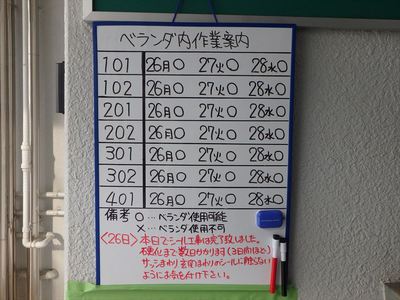 ベランダ内作業案内
101 26月○ 27火○ 28水○
102 26月○ 27火○ 28水○
201 26月○ 27火○ 28水○
202 26月○ 27火○ 28水○
301 26月○ 27火○ 28水○
302 26月○ 27火○ 28水○
401 26月○ 27火○ 28水○
備考 ○…ベランダ使用可能
×…ベランダ使用不可
<26日>本日でシール工事は完了致しました。
硬化まで数日かかります(3日間ほど)
サッシまわり、玄関まわりのシールに触らない
ようにお気を付け下さい。